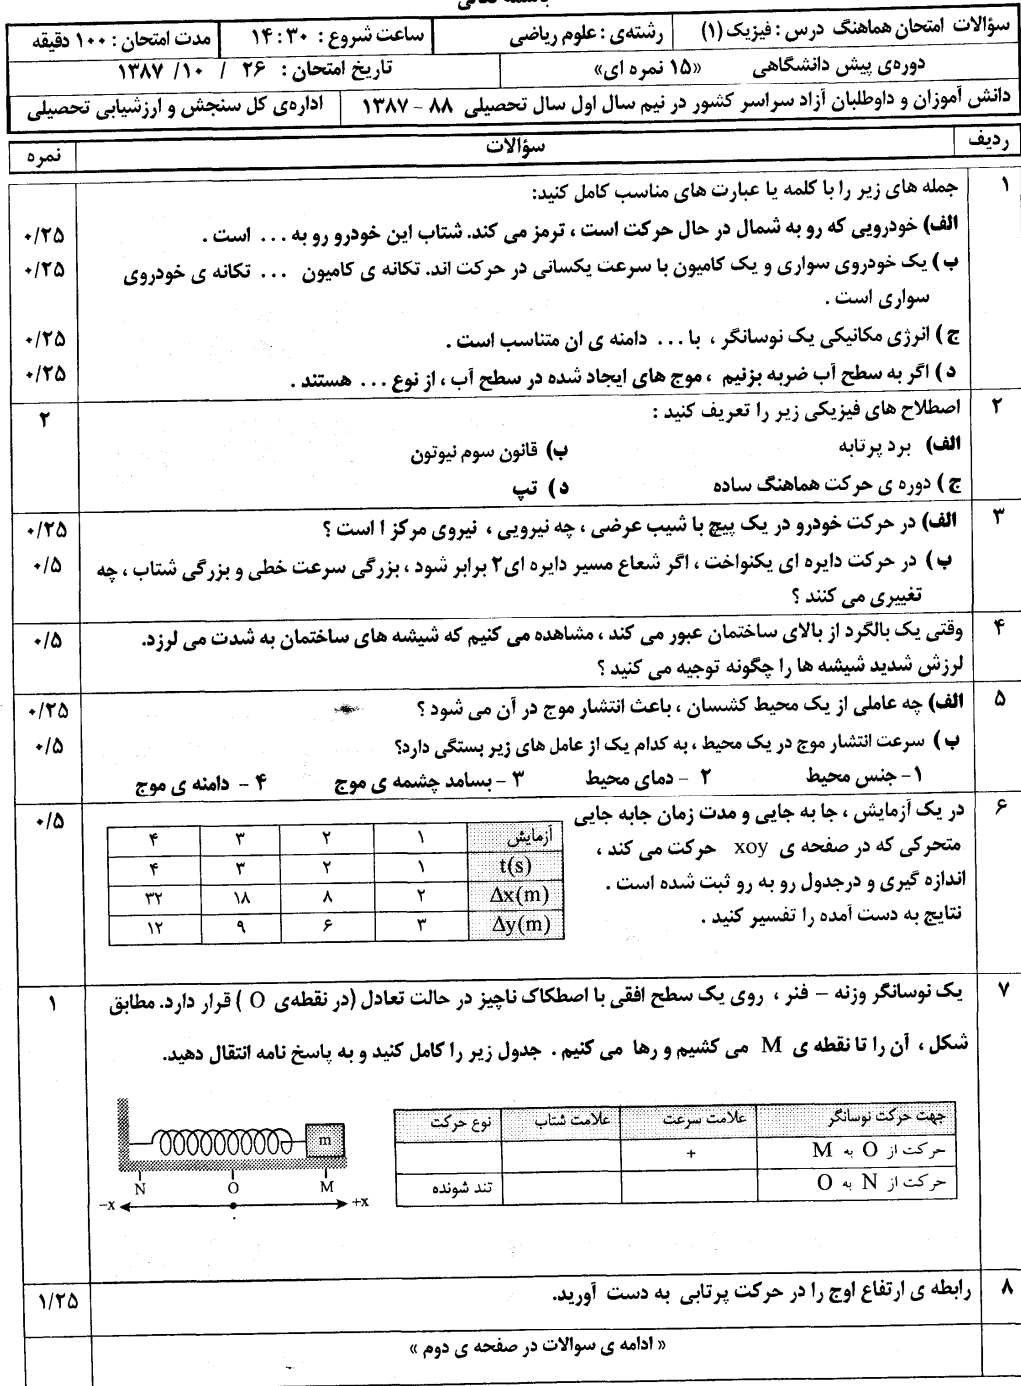 باسمه تعالی
سؤالات امتحان هماهنگ درس : فیزیک (۱) رشته‌ی : علوم ریاضی ساعت شروع : ۱۴:۳۰ مدت امتحان : ۱۰۰ دقیقه
دوره‌ی پیش دانشگاهی «۱۵ نمره ای» تاریخ امتحان : ۲۶ / ۱۰/ ۱۳۸۷
دانش آموزان و داوطلبان آزاد سراسر کشور در نیم سال اول سال تحصیلی ۸۸ - ۱۳۸۷ اداره‌ی کل سنجش و ارزشیابی تحصیلی
ردیف سؤالات نمره
۱ جمله های زیر را با کلمه یا عبارت های مناسب کامل کنید:
الف) خودرویی که رو به شمال در حال حرکت است ، ترمز می کند. شتاب این خودرو رو به ... است . ۰/۲۵
ب ) یک خودروی سواری و یک کامیون با سرعت یکسانی در حرکت اند. تکانه ی کامیون ... تکانه ی خودروی ۰/۲۵
سواری است .
ج ) انرژی مکانیکی یک نوسانگر ، با ... دامنه ی ان متناسب است . ۰/۲۵
د ) اگر به سطح آب ضربه بزنیم ، موج های ایجاد شده در سطح آب ، از نوع ... هستند . ۰/۲۵
۲ اصطلاح های فیزیکی زیر را تعریف کنید : ۲
الف) برد پرتابه ب) قانون سوم نیوتون
ج ) دوره ی حرکت هماهنگ ساده د ) تپ
۳ الف) در حرکت خودرو در یک پیچ با شیب عرضی ، چه نیرویی ، نیروی مرکز ا است ؟ ۰/۲۵
ب ) در حرکت دایره ای یکنواخت ، اگر شعاع مسیر دایره ای۲ برابر شود ، بزرگی سرعت خطی و بزرگی شتاب ، چه ۰/۵
تغییری می کنند ؟
۴ وقتی یک بالگرد از بالای ساختمان عبور می کند ، مشاهده می کنیم که شیشه های ساختمان به شدت می لرزد. ۰/۵
لرزش شدید شیشه ها را چگونه توجیه می کنید ؟
۵ الف) چه عاملی از یک محیط کشسان ، باعث انتشار موج در آن می شود ؟ ۰/۲۵
ب ) سرعت انتشار موج در یک محیط ، به کدام یک از عامل های زیر بستگی دارد؟ ۰/۵
۱- جنس محیط ۲ - دمای محیط ۳ - بسامد چشمه ی موج ۴ - دامنه ی موج
۶ در یک آزمایش ، جا به جایی و مدت زمان جابه جایی ۰/۵
متحرکی که در صفحه ی xoy حرکت می کند ،
اندازه گیری و درجدول رو به رو ثبت شده است .
نتایج به دست آمده را تفسیر کنید .
آزمایش ۱ ۲ ۳ ۴
t(s) ۱ ۲ ۳ ۴
Δx(m) ۲ ۸ ۱۸ ۳۲
Δy(m) ۳ ۶ ۹ ۱۲
۷ یک نوسانگر وزنه – فنر ، روی یک سطح افقی با اصطکاک ناچیز در حالت تعادل (در نقطه‌ی O ) قرار دارد. مطابق ۱
شکل ، آن را تا نقطه ی M می کشیم و رها می کنیم . جدول زیر را کامل کنید و به پاسخ نامه انتقال دهید.
جهت حرکت نوسانگر علامت سرعت علامت شتاب نوع حرکت
حرکت از O به M +
حرکت از N به O تند شونده
m
N O M
-x +x
۸ رابطه ی ارتفاع اوج را در حرکت پرتابی به دست آورید. ۱/۲۵
« ادامه ی سوالات در صفحه ی دوم »